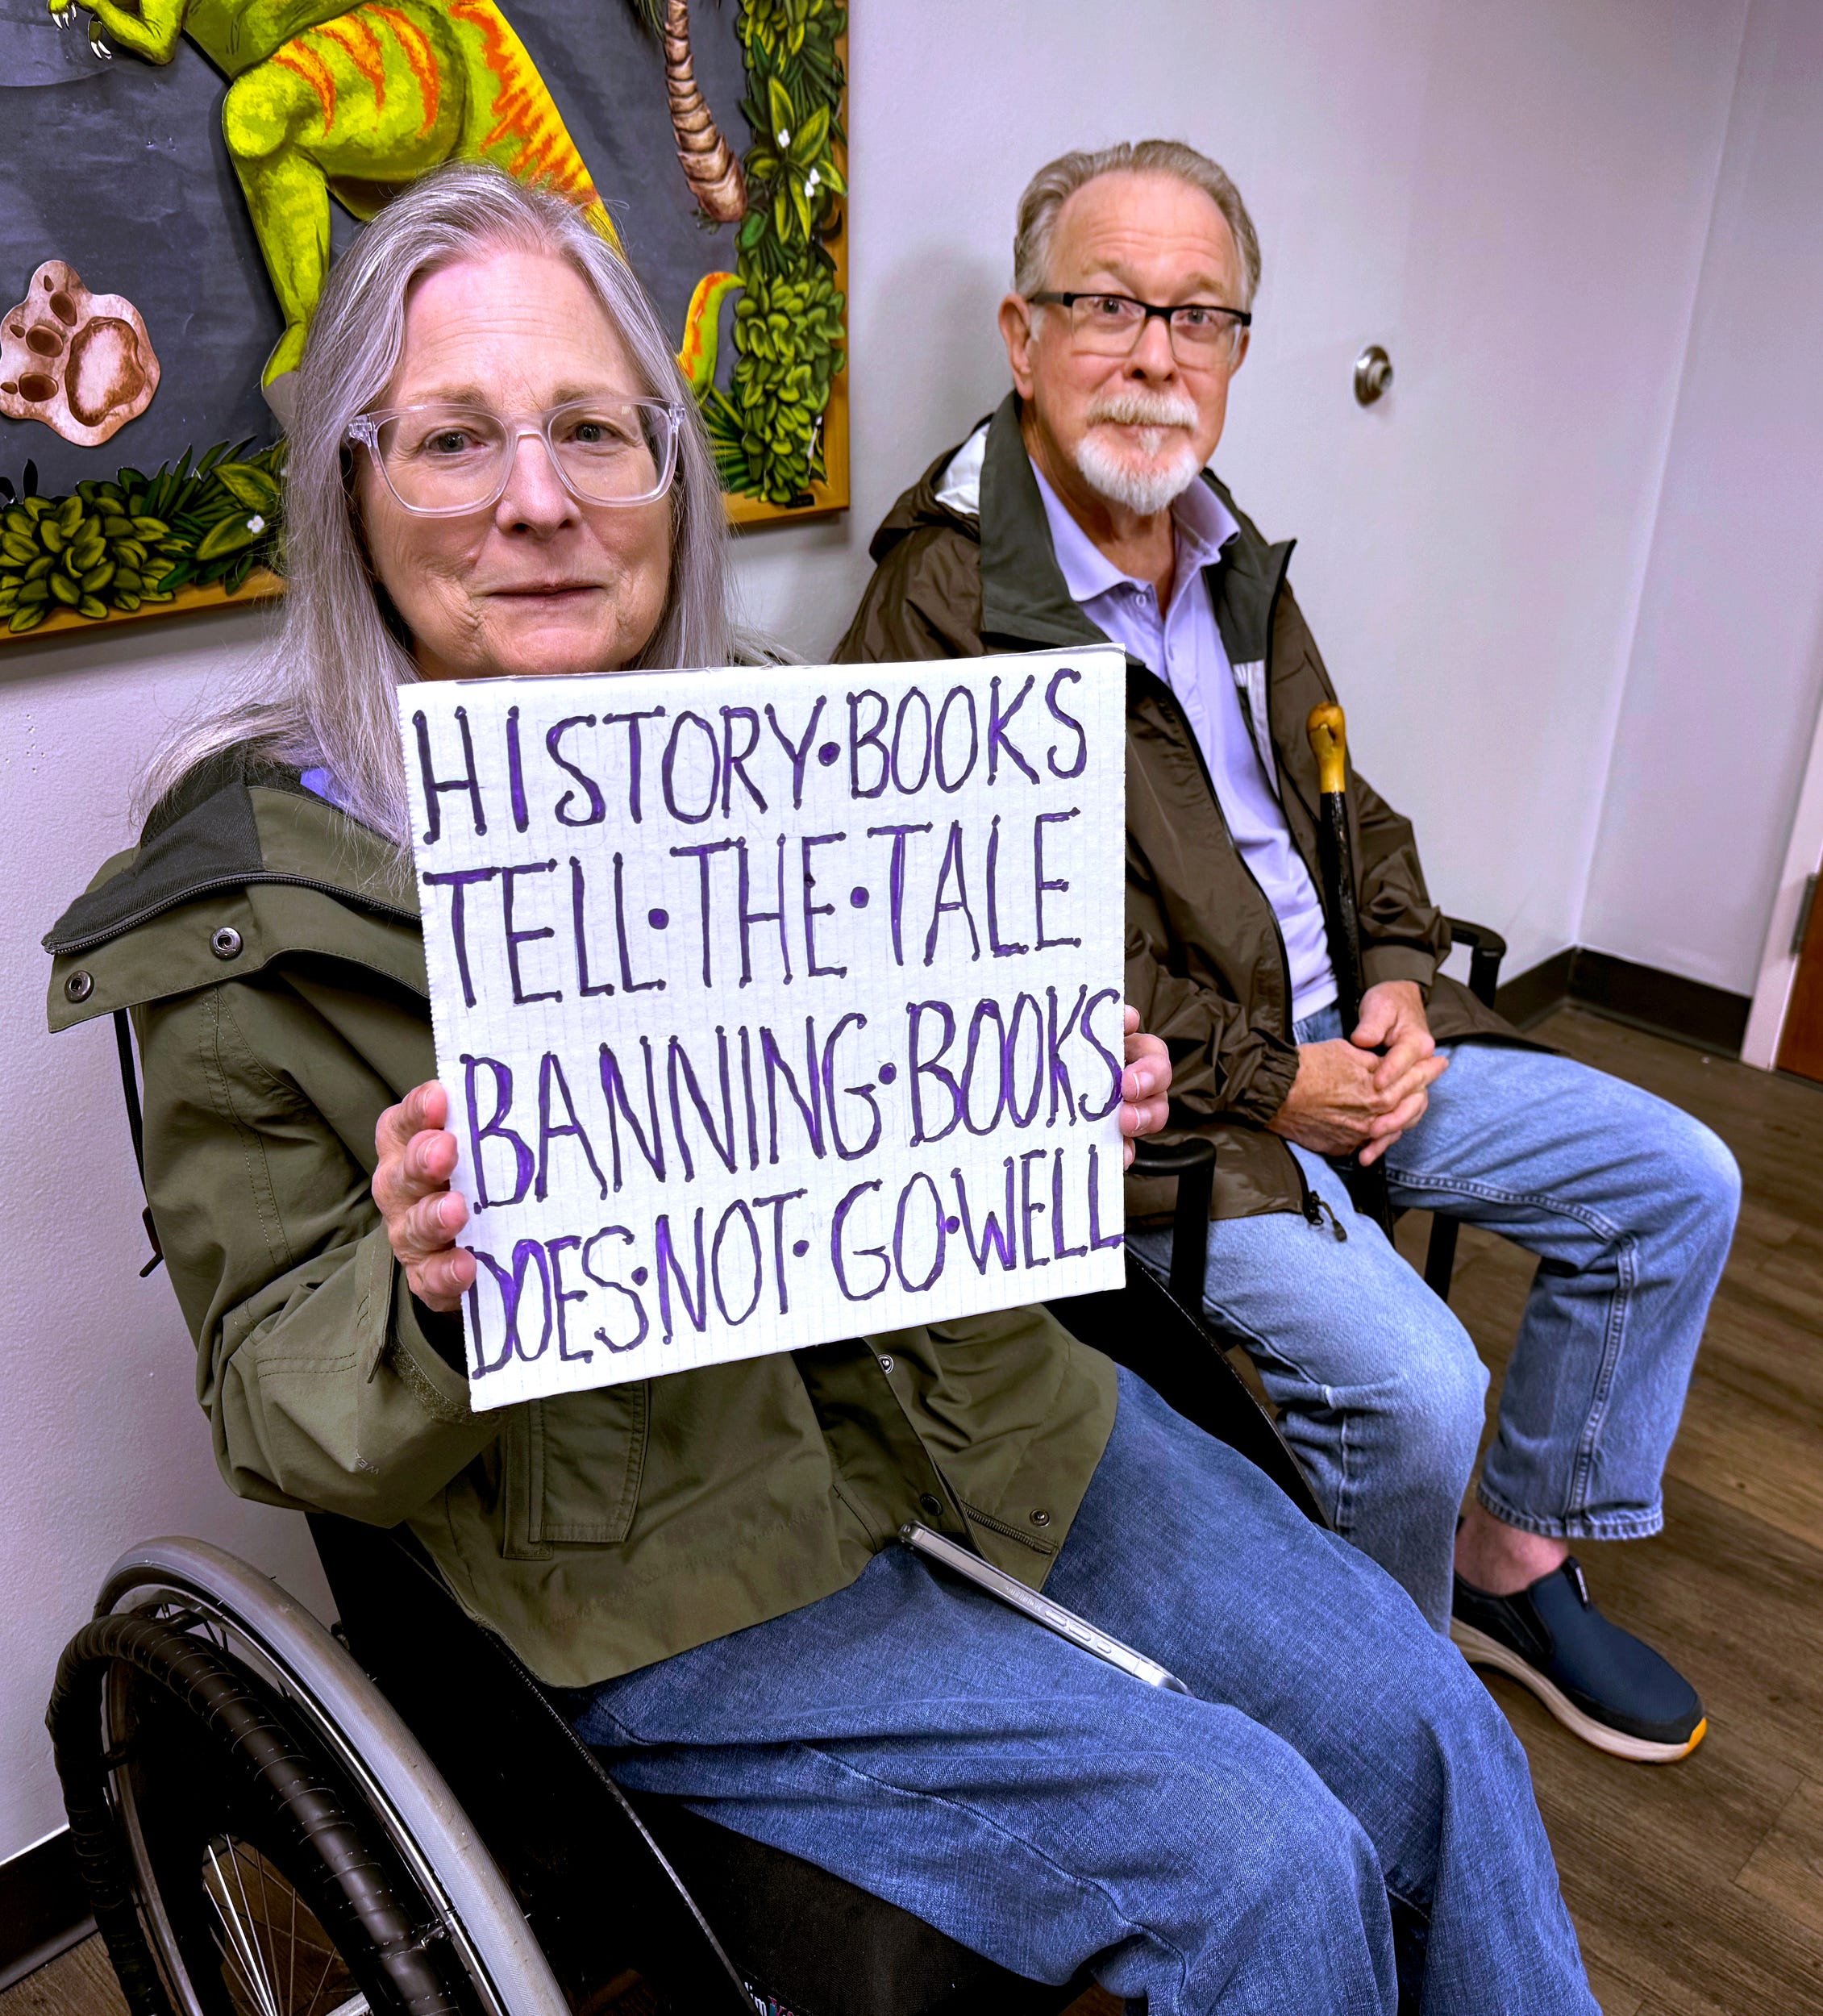 HISTORY•BOOKS
TELL•THE•TALE
BANNING•BOOKS
DOES•NOT•GO•WELL